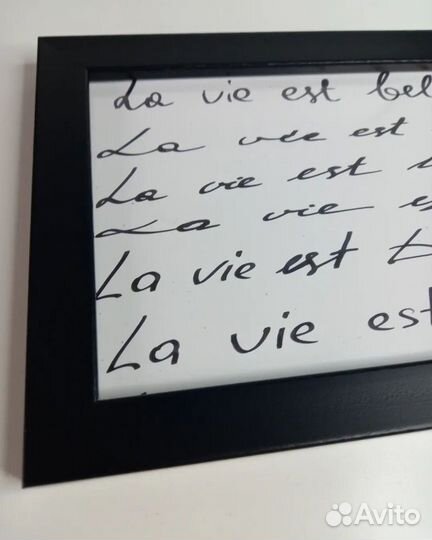 La vie est bel
La vie est
La vie est
La vie
La vie est
La vie est
Avito